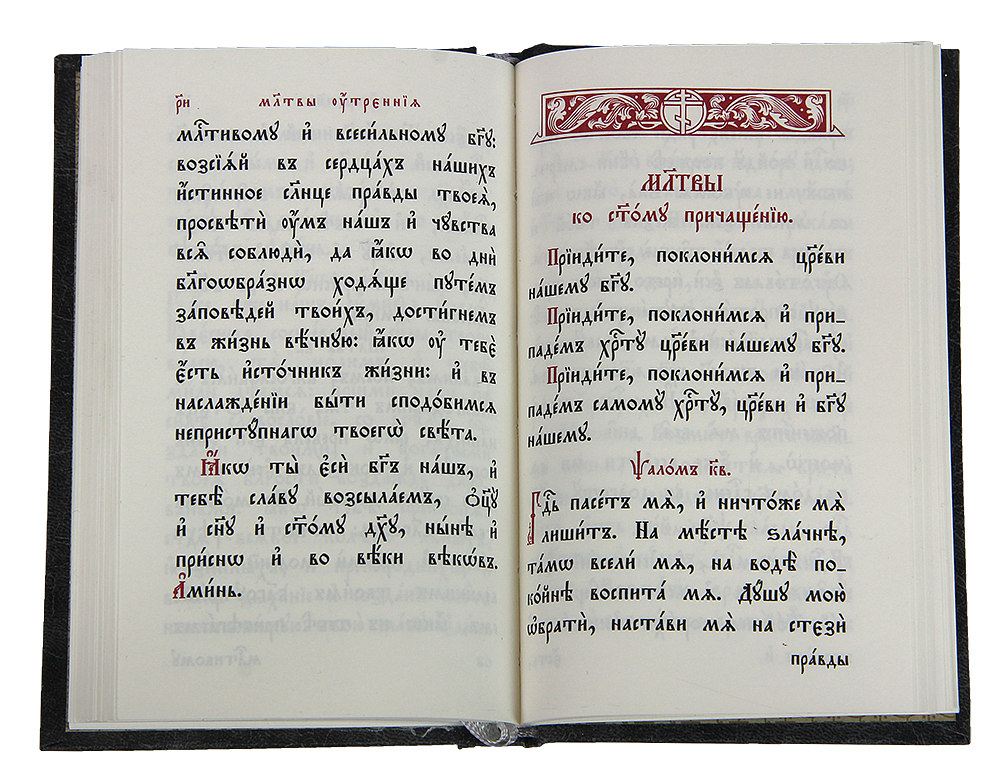 р҃н
мл҃твы ᲂу҆́треннїѧ
мл҇тивому и҆ всесильному бг҃у:
возсїѧ́й въ сердца́хъ на́шихъ
и҆́стинное сл҃нце пра́вды твоеѧ̀,
просвѣтѝ ᲂу҆́мъ на́шъ и҆ чꙋ҄вства
всѧ̑ соблюдѝ, да ꙗ҆́кѡ во днѝ
бл҃гоѡбра́знѡ ходѧ́ще пꙋте́мъ
за́повѣдей твои́хъ, дости́гнемъ
въ жи́знь вѣ́чнꙋю: ꙗ҆́кѡ ᲂу҆ тебѐ
є҆́сть и҆сто́чникъ жи́зни: и҆ въ
наслажде́нїи бы́ти сподо́бимсѧ
непристꙋ́пнагѡ твоегѡ̀ свѣ́та.
Ꙗ҆́кѡ ты̀ є҆сѝ бг҃ъ на́шъ, и҆
тебѣ̀ сла́вꙋ возсыла́емъ, ѻ҆ц҃ꙋ̀
и҆ сн҃ꙋ и҆ ст҃о́мꙋ дх҃ꙋ, ны́нѣ и҆
при́снѡ и҆ во вѣ́ки вѣкѡ́въ.
А҆ми́нь.
МЛ҃ТВЫ
ко ст҃о́мꙋ причаще́нїю.
Прїиди́те, поклони́мсѧ цр҃е́ви
на́шемꙋ бг҃ꙋ.
Прїиди́те, поклони́мсѧ и҆ при-
паде́мъ хр҇тꙋ̀ цр҃е́ви на́шемꙋ бг҃ꙋ.
Прїиди́те, поклони́мсѧ и҆ при-
паде́мъ самомꙋ̀ хр҇тꙋ̀, цр҃е́ви и҆ бг҃ꙋ
на́шемꙋ.
Ѱало́мъ к҃в.
Гд҇ь пасе́тъ мѧ̀, и҆ ничто́же мѧ̀
лиши́тъ. На мѣ́стѣ ѕла́чнѣ,
та́мѡ всели́ мѧ, на водѣ̀ по-
ко́йнѣ воспита́ мѧ. Дꙋ́шꙋ мою̀
ѡ҆братѝ, наста́ви мѧ̀ на стезѝ
пра́вды